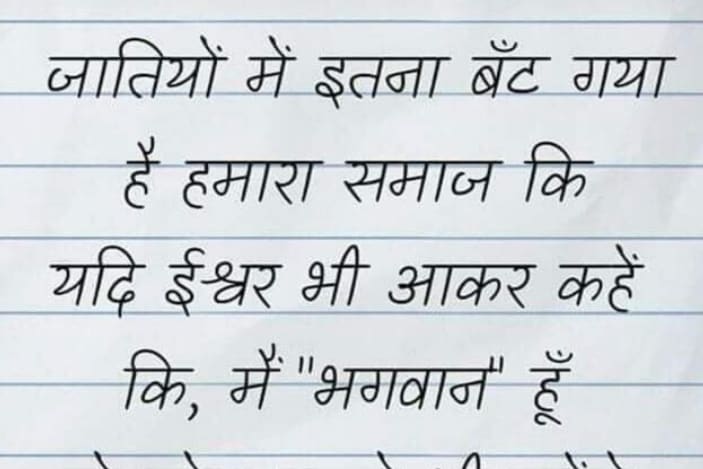 जातियों में इतना बँट गया
है हमारा समाज कि
यदि ईश्वर भी आकर कहें
कि, मैं "भगवान" हूँ